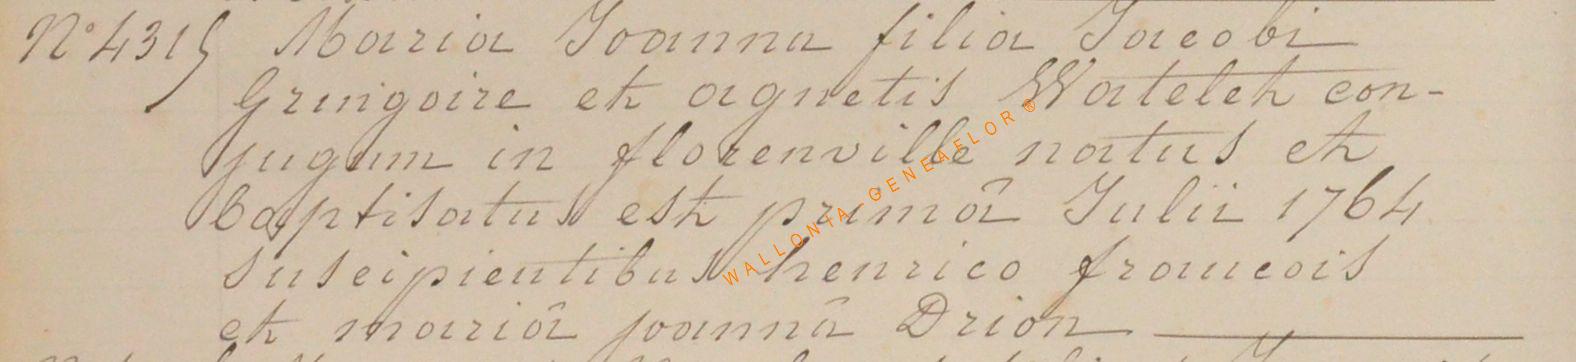 N° 4315 Maria Joanna filia Jacobi
Gringoire et agnetis Watelet con-
jugum in florenville natus et
baptisatus est primâ Julii 1764
suscipientibus henrico francois
et mariâ joannâ Drion
WALLONIA-GENEAFLOR ®